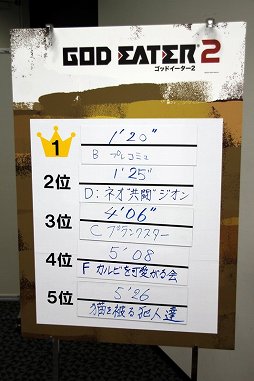 GOD EATER 2
ゴッドイーター2
1
1'20"
B プレコミュ
2位
1'25"
D:ネオ"共闘"ジオン
3位
4'06"
C ブランクスター
4位
5'08
F カルビを可愛がる会
5位
5'26
猫を被る犯人達